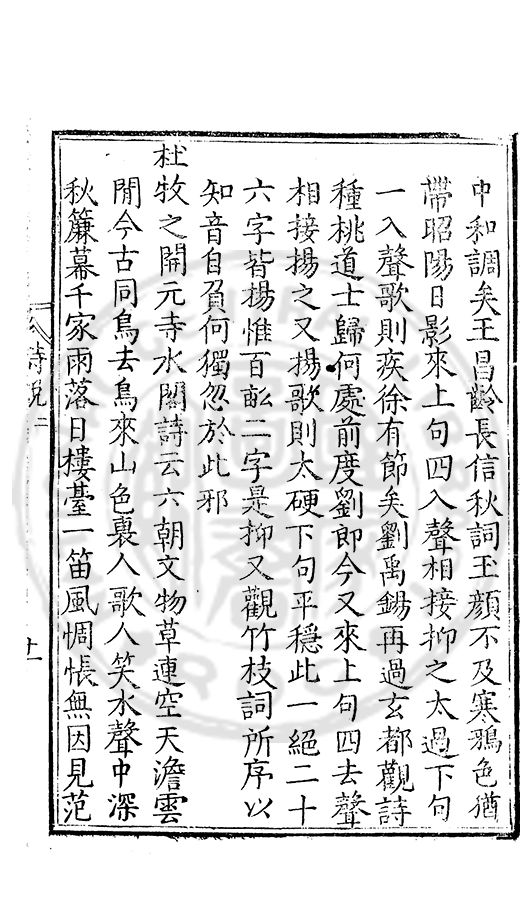 中和調矣王昌齡長信秋詞玉顔不及寒鴉色猶
帶昭陽日影來上句四入聲相接抑之太過下句
一入聲歌則疾徐有節矣劉禹錫再過玄都觀詩
種桃道士歸何處前度劉郎今又來上句四去聲
相接揚之又揚歌則太硬下句平穩此一絕二十
六字皆揚惟百畝二字是抑又觀竹枝詞所序以
知音自負何獨忽於此邪
杜牧之開元寺水閣詩云六朝文物草連空天澹雲
閒今古同鳥去鳥來山色裏人歌人笑水聲中深
秋簾幕千家雨落日樓臺一笛風惆悵無因見范
詩說二
十一